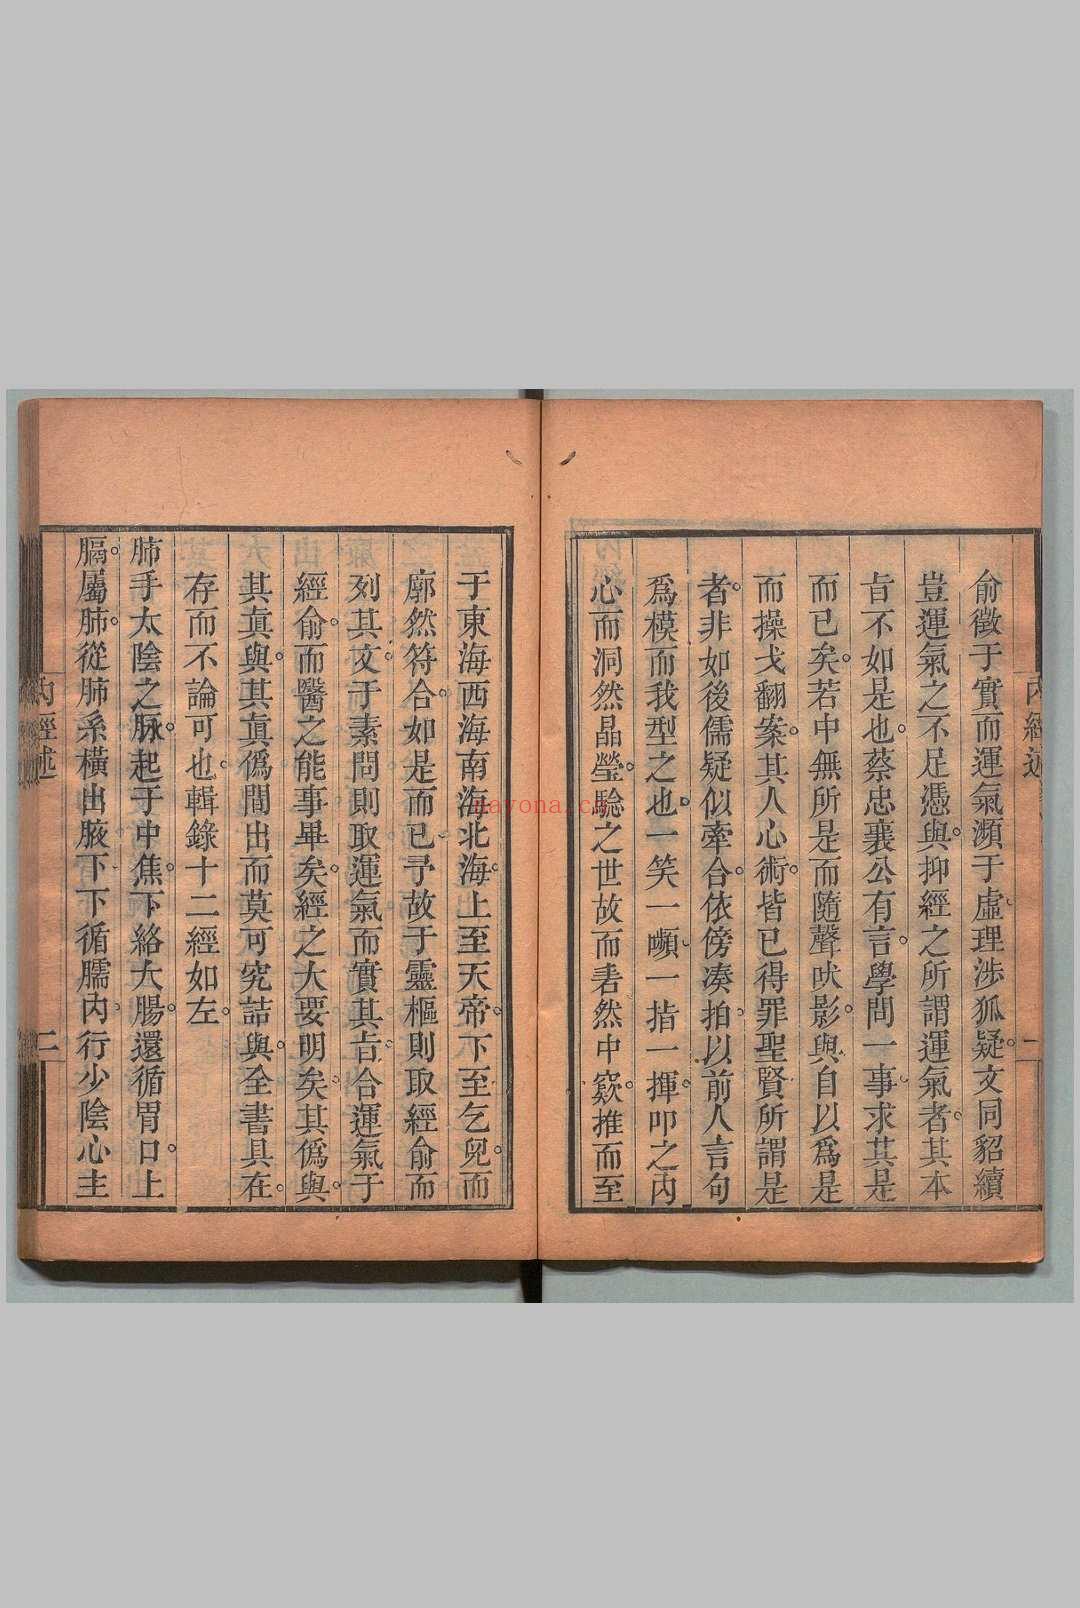 俞徵于實而運氣瀕于虛理涉狐疑文同貂續
豈運氣之不足憑與抑經之所謂運氣者其本
旨不如是也蔡忠襄公有言學問一事求其是
而已矣若中無所是而隨聲吠影與自以爲是
而操戈翻案其人心術皆已得罪聖賢所謂是
者非如後儒疑似牽合依傍湊拍以前人言句
爲模而我型之也一笑一嚬一指一揮叩之內
心而洞然晶瑩驗之世故而砉然中窾推而至
內經述
二
于東海西海南海北海上至天帝下至乞兒而
廓然符合如是而已予故于靈樞則取經俞而
列其文于素問則取運氣而實其旨合運氣于
經俞而醫之能事畢矣經之大要明矣其僞與
其眞與其眞僞間出而莫可究詰與全書具在
存而不論可也輯錄十二經如左
肺手太陰之脉起于中焦下絡大腸還循胃口上
膈屬肺從肺系橫出腋下下循臑內行少陰心主
內經述
二